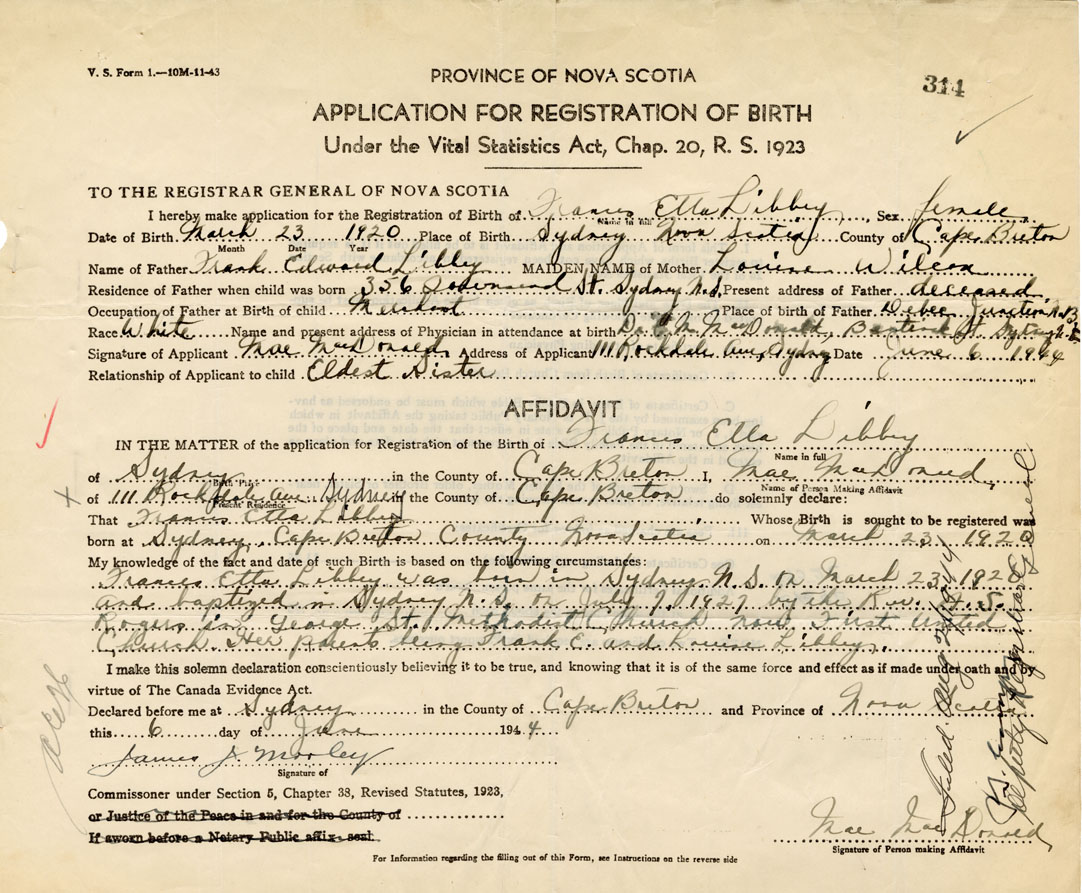 V. S. Form 1.—10M-11-43
314
PROVINCE OF NOVA SCOTIA
APPLICATION FOR REGISTRATION OF BIRTH
Under the Vital Statistics Act, Chap. 20, R. S. 1923
TO THE REGISTRAR GENERAL OF NOVA SCOTIA
I hereby make application for the Registration of Birth of Frances Etta Libbey, Sex female
Name in full
Date of Birth March 23 1920 Place of Birth Sydney Nova Scotia County of Cape Breton
Month Date Year
Name of Father Frank Edward Libbey MAIDEN NAME of Mother Louise Wilcox
Residence of Father when child was born 356 Townsend St. Sydney N.S. Present address of Father deceased
Occupation of Father at Birth of child Merchant Place of Birth of Father Debec Junction N.B
Race White Name and present address of Physician in attendance at birth Dr. MacDonald, St Sydney N.S
Signature of Applicant Mae MacDonald Address of Applicant 111 Rockdale Ave, Sydney Date June 6 1944
Relationship of Applicant to child Eldest Sister
AFFIDAVIT
IN THE MATTER of the application for Registration of the Birth of Frances Etta Libbey
Name in full
of Sydney in the County of Cape Breton I, Mae MacDonald,
Birth Place Name of Person Making Affidavit
of 111 Rockdale Ave. Sydney the County of Cape Breton do solemnly declare:
Present Residence
That Frances Etta Libbey Whose Birth is sought to be registered was
born at Sydney, Cape Breton County Nova Scotia on March 23 1920
My knowledge of the fact and date of such Birth is based on the following circumstances:
Frances Etta Libbey was born in Sydney N.S. on March 23, 1920
and baptized in Sydney N.S. on July 7, 1927 by the Rev.
Rogers in George St. Methodist Church now First United
Church. Her parents being Frank E. and Louise Libbey.
I make this solemn declaration conscientiously believing it to be true, and knowing that it is of the same force and effect as if made under oath and by
virtue of The Canada Evidence Act.
Declared before me at Sydney in the County of Cape Breton and Province of Nova Scotia
this 6 day of June 1944.
James J. Morley
Signature of
Commissoner under Section 5, Chapter 38, Revised Statutes, 1923,
or Justice of the Peace in and for the County of
If sworn before a Notary Public affix seal.
Mae MacDonald
Signature of Person making Affidavit
For Information regarding the filling out of this Form, see Instructions on the reverse side
Filed Aug 1944
Deputy Registrar General